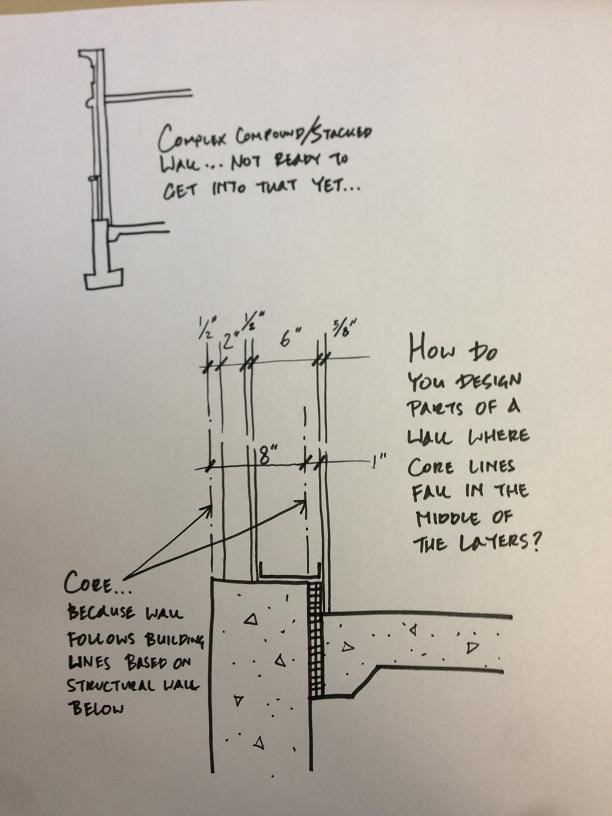 COMPLEX COMPOUND/STACKED
WALL... NOT READY TO
GET INTO THAT YET...
1/2" 2" 1/2" 6" 5/8"
8" 1"
HOW DO
YOU DESIGN
PARTS OF A
WALL WHERE
CORE LINES
FALL IN THE
MIDDLE OF
THE LAYERS?
CORE...
BECAUSE WALL
FOLLOWS BUILDING
LINES BASED ON
STRUCTURAL WALL
BELOW